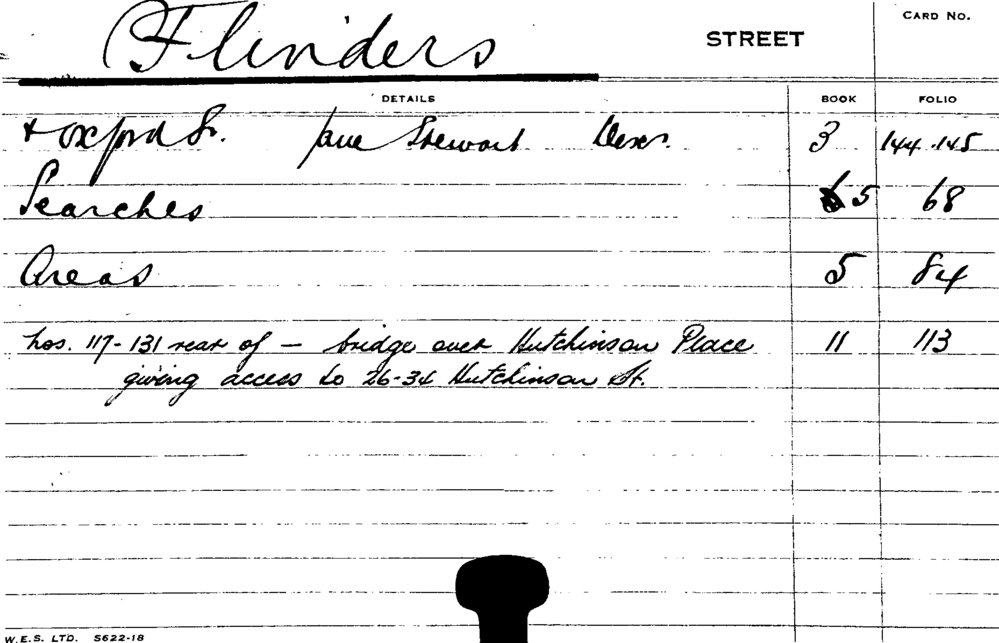 CARD NO.
Flinders STREET
DETAILS BOOK FOLIO
+ Oxford St. Jane Stewart 3 144.145
Searches 5 68
Areas 5 84
Nos. 117-131 rear of — bridge over Hutchinson Place 11 113
giving access to 26-34 Hutchinson St.
W.E.S. LTD. S622-18